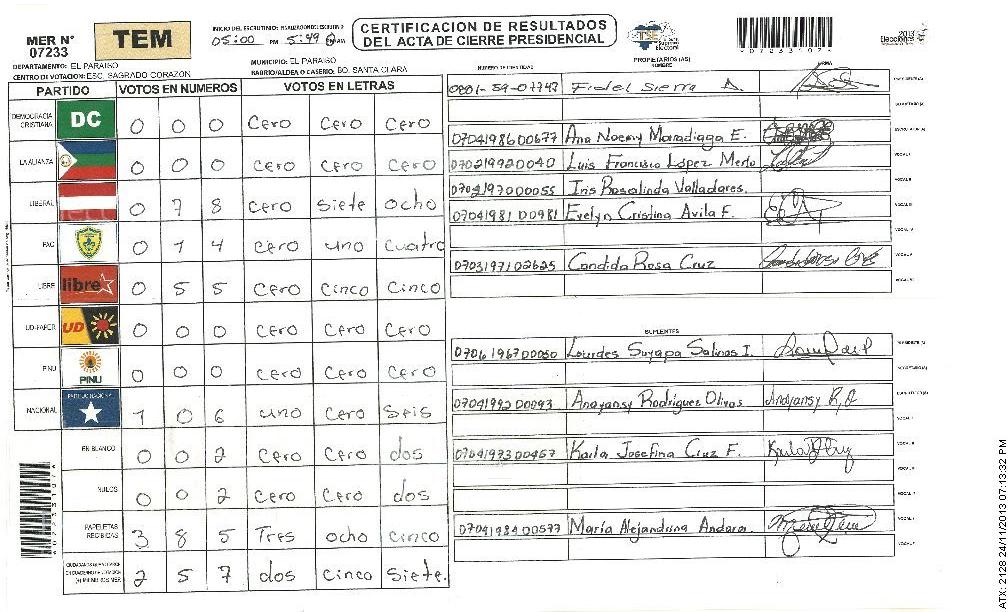 MER N°
07233
TEM
INICIO DEL ESCRUTINIO: FINALIZACION DEL ESCRUTINIO
05:00 PM 5:49
CERTIFICACION DE RESULTADOS
DEL ACTA DE CIERRE PRESIDENCIAL
TSE
07233107
2013
Elecciones
DEPARTAMENTO: EL PARAISO
MUNICIPIO: EL PARAISO
CENTRO DE VOTACION: ESC. SAGRADO CORAZON
BARRIO/ALDEA O CASERIO: BO. SANTA CLARA
PARTIDO VOTOS EN NUMEROS VOTOS EN LETRAS
DEMOCRACIA CRISTIANA DC 0 0 0 Cero Cero Cero
LA ALIANZA 0 0 0 Cero Cero Cero
LIBERAL 0 7 8 Cero Siete ocho
PAC 0 1 4 Cero uno Cuatro
LIBRE libre 0 5 5 Cero Cinco Cinco
UD-FAPER UD 0 0 0 Cero Cero Cero
PINU PINU 0 0 0 Cero Cero Cero
NACIONAL PARTIDO NACIONAL 1 0 6 uno Cero Seis
EN BLANCO 0 0 2 Cero Cero dos
NULOS 0 0 2 Cero Cero dos
PAPELETAS RECIBIDAS 3 8 5 Tres ocho cinco
2 5 7 dos Cinco Siete.
NUMERO DE IDENTIDAD
PROPIETARIOS (AS)
NOMBRE
FIRMA
0801-59-07743 Fidel Sierra A.
0704198600677 Ana Noemy Maradiaga E.
070219920040 Luis Francisco López Merlo
0704197000055 Iris Rosalinda Valladares.
07041981 00981 Evelyn Cristina Avila F.
0703197102625 Candida Rosa Cruz
SUPLENTES
0706196700050 Lourdes Suyapa Salinas I.
07041992 00093 Anayansy Rodriguez Olivas Anayansy R,O
0704197300457 Karla Josefina Cruz F.
07041984 00577 María Alejandrina Andara.
ATX: 2128 24/11/2013 07:13:32 PM